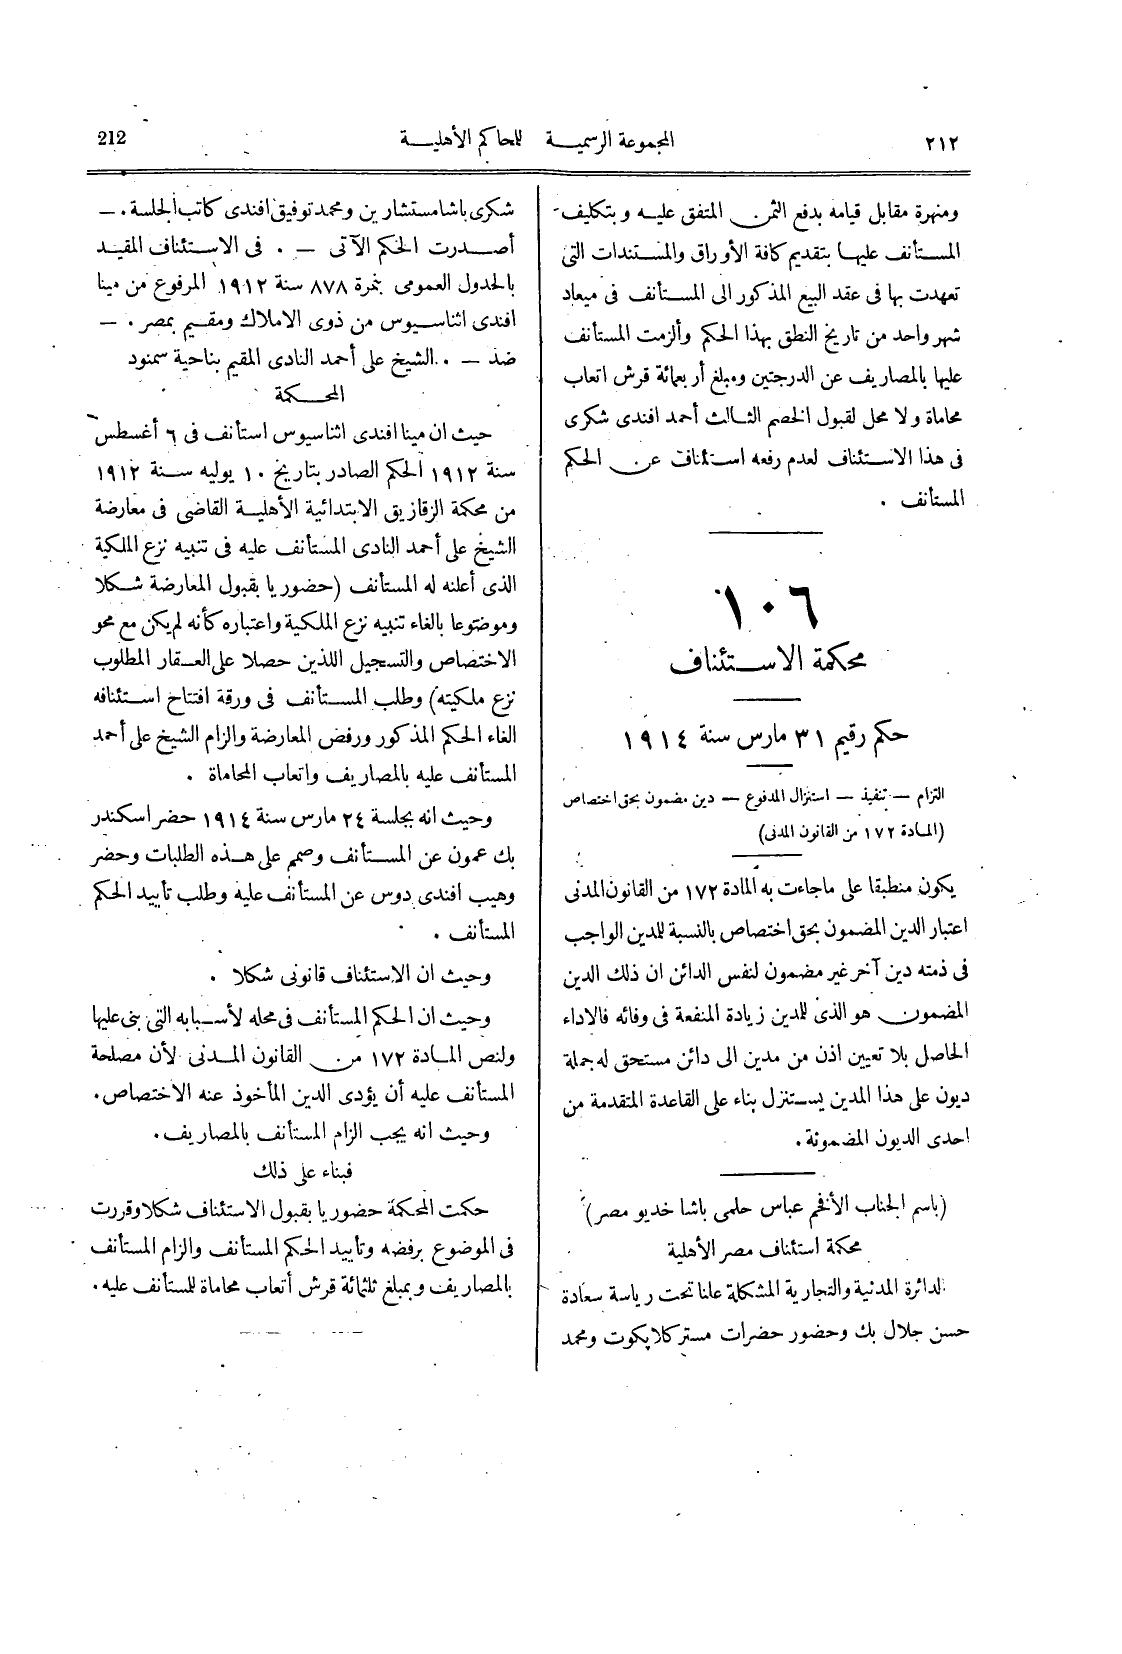 ٢١٢ المجموعة الرسمية للمحاكم الأهلية 212
ونمرة مقابل قيامه بدفع الثمن المتفق عليه وبتكليف
المستأنف عليها بتقديم كافة الأوراق والمستندات التى
تعهدت بها فى عقد البيع المذكور الى المستأنف فى ميعاد
شهر واحد من تاريخ النطق بهذا الحكم وألزمت المستأنف
عليها بالمصاريف عن الدرجتين ومبلغ أربعمائة قرش اتعاب
محاماة ولا محل لقبول الخصم الثالث أحمد افندى شكرى
فى هذا الاستئناف لعدم رفعه استئناف عن الحكم
المستأنف .
١٠٦
محكمة الاستئناف
حكم رقيم ٣١ مارس سنة ١٩١٤
التزام — تنفيذ — استنزال المدفوع — دين مضمون بحق اختصاص
(المادة ١٧٢ من القانون المدنى)
يكون منطبقا على ماجاءت به المادة ١٧٢ من القانون المدنى
اعتبار الدين المضمون بحق اختصاص بالنسبة للمدين الواجب
فى ذمته دين آخر غير مضمون لنفس الدائن ان ذلك الدين
المضمون هو الذى للمدين زيادة المنفعة فى وفائه فالاداء
الحاصل بلا تعيين اذن من مدين الى دائن مستحق له جملة
ديون على هذا المدين يستنزل بناء على القاعدة المتقدمة من
احدى الديون المضمونة .
(باسم الجناب الأفخم عباس حلمى باشا خديو مصر)
محكمة استئناف مصر الأهلية
الدائرة المدنية والتجارية المشكلة علنا تحت رياسة سعادة
حسن جلال بك وحضور حضرات مستر كلايكوت ومحمد
شكرى باشا مستشارين ومحمد توفيق افندى كاتب الجلسة . —
أصدرت الحكم الآتى — . فى الاستئناف المقيد
بالجدول العمومى بنمرة ٨٧٨ سنة ١٩١٢ المرفوع من مينا
افندى اثناسيوس من ذوى الاملاك ومقيم بمصر . —
ضد — . الشيخ على أحمد النادى المقيم بناحية سمنود
المحكمة
حيث ان مينا افندى اثناسيوس استأنف فى ٦ أغسطس
سنة ١٩١٢ الحكم الصادر بتاريخ ١٠ يوليه سنة ١٩١٢
من محكمة الزقازيق الابتدائية الأهلية القاضى فى معارضة
الشيخ على أحمد النادى المستأنف عليه فى تنبيه نزع الملكية
الذى أعلنه له المستأنف (حضوريا بقبول المعارضة شكلا
وموضوعا بالغاء تنبيه نزع الملكية واعتباره كأنه لم يكن مع محو
الاختصاص والتسجيل اللذين حصلا على العقار المطلوب
نزع ملكيته) وطلب المستأنف فى ورقة افتتاح استئنافه
الغاء الحكم المذكور ورفض المعارضة والزام الشيخ على أحمد
المستأنف عليه بالمصاريف واتعاب المحاماة .
وحيث انه بجلسة ٢٤ مارس سنة ١٩١٤ حضر اسكندر
بك عمون عن المستأنف وصمم على هذه الطلبات وحضر
وهيب افندى دوس عن المستأنف عليه وطلب تأييد الحكم
المستأنف .
وحيث ان الاستئناف قانونى شكلا .
وحيث ان الحكم المستأنف فى محله لأسبابه التى بنى عليها
ولنص المادة ١٧٢ من القانون المدنى لأن مصلحة
المستأنف عليه أن يؤدى الدين المأخوذ عنه الاختصاص .
وحيث انه يجب الزام المستأنف بالمصاريف .
فبناء على ذلك
حكمت المحكمة حضوريا بقبول الاستئناف شكلا وقررت
فى الموضوع برفضه وتأييد الحكم المستأنف والزام المستأنف
بالمصاريف وبمبلغ ثلثمائة قرش أتعاب محاماة للمستأنف عليه .